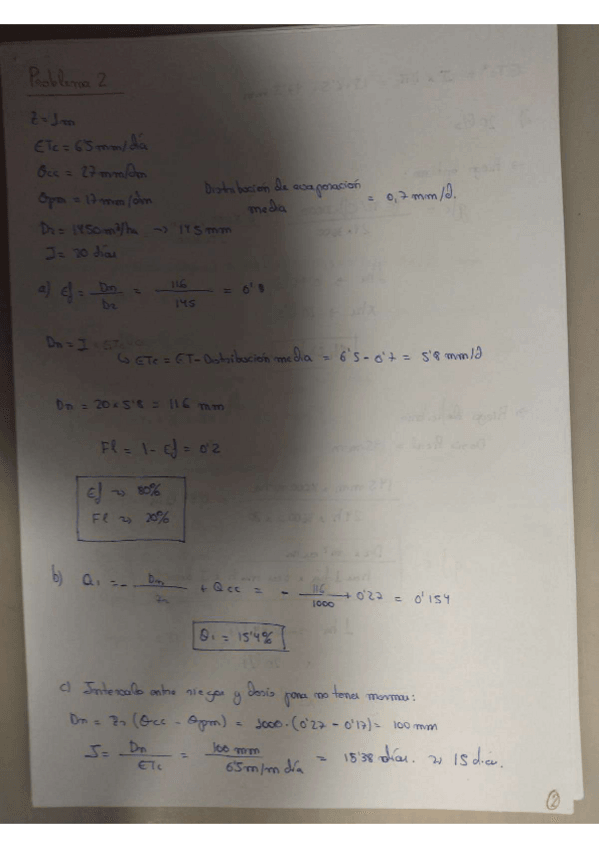 Problema 2
Z = 1m
ETc = 6'5 mm/día
θcc = 27 mm/dm
θpm = 17 mm/dm
Distribución de evaporación media = 0,7 mm/d.
Dr = 1450 m³/ha → 145 mm
I = 20 días
a) Ef = Dn / Dr = 116 / 145 = 0'8
Dn = I
↳ ETc = ET - Distribución media = 6'5 - 0'7 = 5'8 mm/d
Dn = 20 x 5'8 = 116 mm
Fl = 1 - Ef = 0'2
Ef → 80%
Fl → 20%
b) θ1 = - Dn / Zr + θcc = - 116 / 1000 + 0'27 = 0'154
θ1 = 15'4%
c) Intervalo entre riegos y dosis para no tener mermas:
Dn = Zr (θcc - θpm) = 1000 · (0'27 - 0'17) = 100 mm
I = Dn / ETc = 100 mm / 6'5 m/m día = 15'38 días. → 15 días.
2